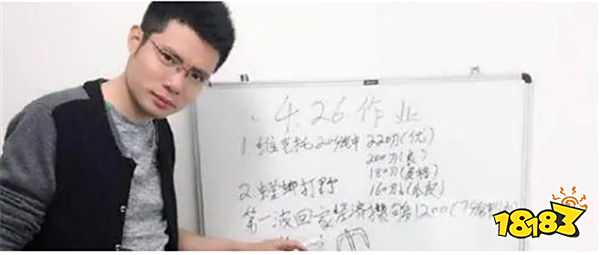 4.26作业
1.维克托20分钟 220刀(优)
200刀(良)
180刀(及格)
160刀(
2.螳螂打野
第一次回家经济攒够1200(7分
18183